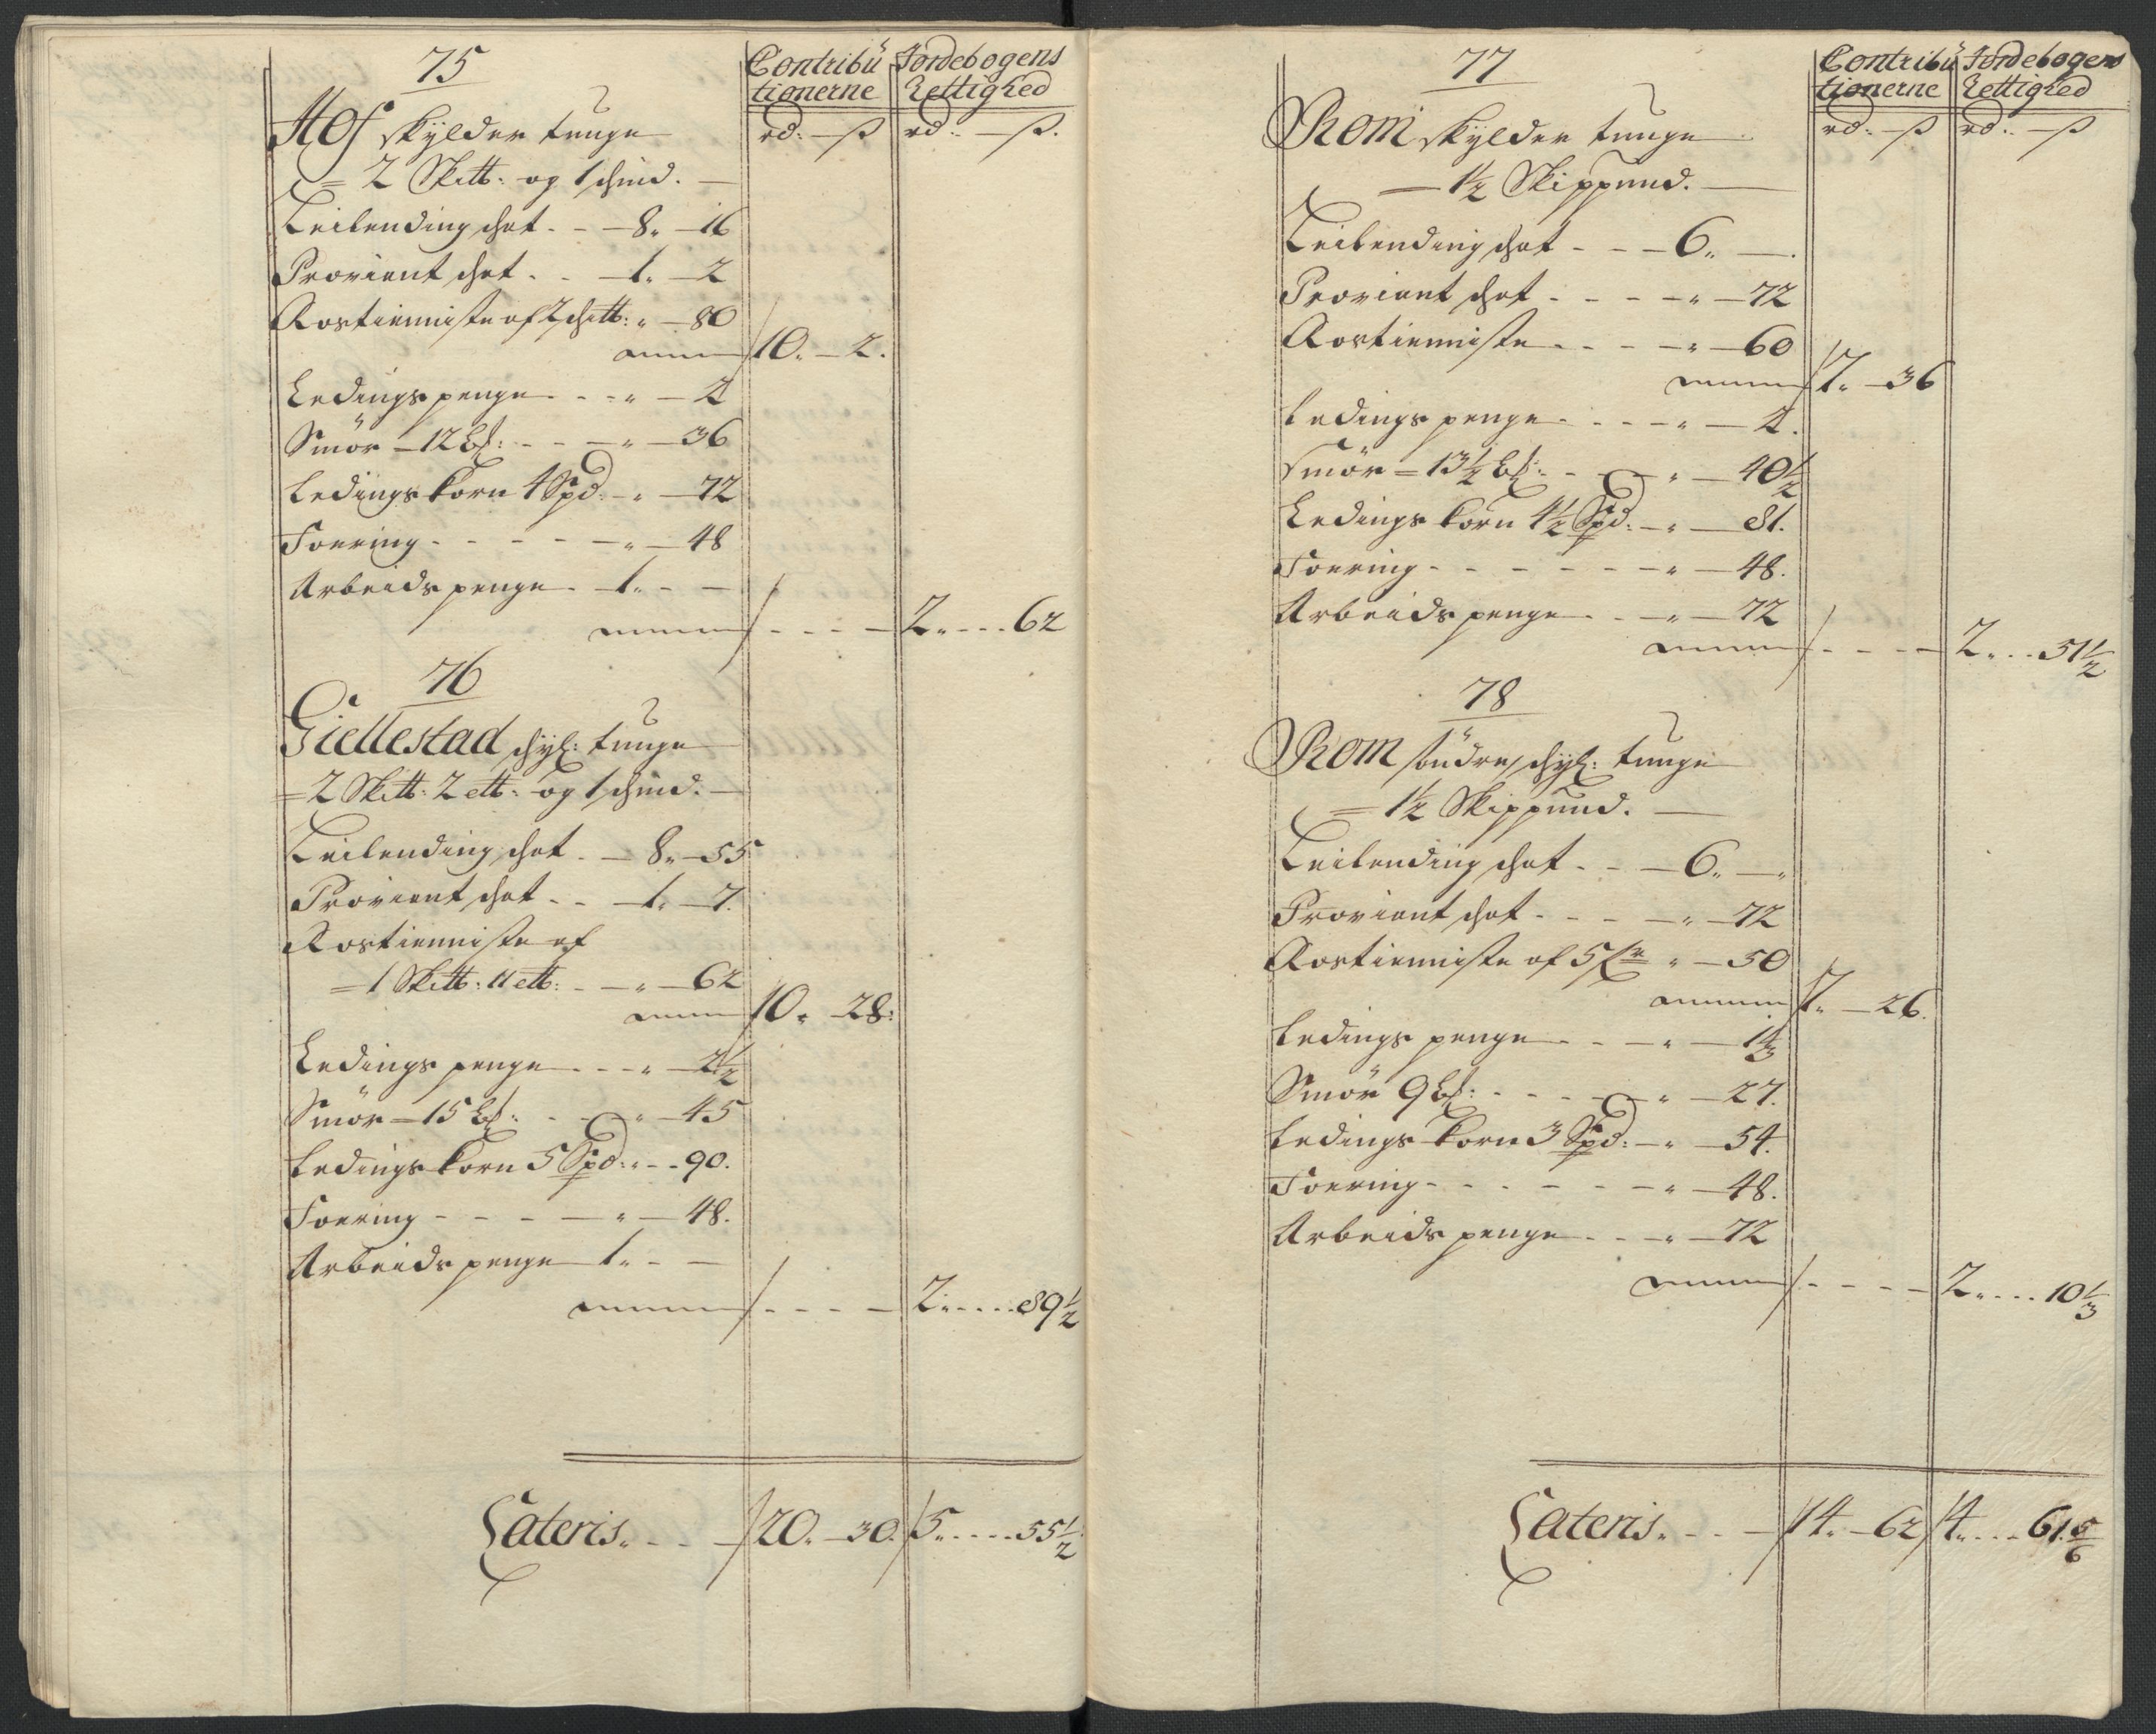 75
Contribu Jordebogens
tionerne Rettighed
rd: – ß rd: – ß.
Hof skylder tunge
= 2 Skitt: og 1 schind.
Leilending schat - - 8„ – 16
Proviant schat - - 1„ – 2
Rostieniste af 2 schtt: „ – 80
10„ – 2.
Ledings penge - - - „ – 2
Smör – 12 b - - - „ – 36
Ledings korn 4 Spd: – „ – 72
Foering - - - - - „ – 48
Arbeids penge - 1„ - –
2„ - - - 62
76
Giellestad schyl: tunge
= 2 Skitt: 2 ett: og 1 schind: –
Leilending schat - – 8„ – 55
Proviant schat - - 1„ – 7.
Rostieniste af
= 1 Skitt: 11 ett: - – „ – 62
10„ – 28:
Ledings penge - - - „ – 2½
Smör – 15 b - - - „ – 45
Ledings korn 5 Spd: „ - - 90.
Foering - - - – „ – 48.
Arbeids penge – 1„ - –
2„ - - - - 89½
Lateris„ - - – 20„ – 30. 5„ - - - - 55½
77
Contribu Jordebogens
tionerne Rettighed
rd: – ß rd: – ß
Rom skylder tunge
– 1½ Skippund. –
Leilending schat - - – 6„ –.
Proviant schat - - - – „ – 72
Rostieniste - - - – „ – 60
7„ – 36
Ledings penge - - - – „ – 2.
Smör = 13½ b - - - „ – 40½
Ledings korn 4½ Spd: – „ – 81.
Foering - - - - - - – „ – 48.
Arbeids penge - - – „ – 72
2„ - - 51½
78
Rom söndre, schyl: tunge
= 1½ Skippund. –
Leilending schat - - – 6„ – „
Proviant schat - - - – „ – 72
Rostieniste af 5 „ – 50
7„ – 26.
Ledings penge - - – „ – 1⅓
Smör 9 b - - - - „ – 27.
Ledings korn 3 Spd: – „ – 54.
Foering - - - - - – „ – 48.
Arbeids penge - - – „ – 72
2„ - - - 10⅓
Lateris„ - - – 14„ – 62 4„ - - - 61 5/6